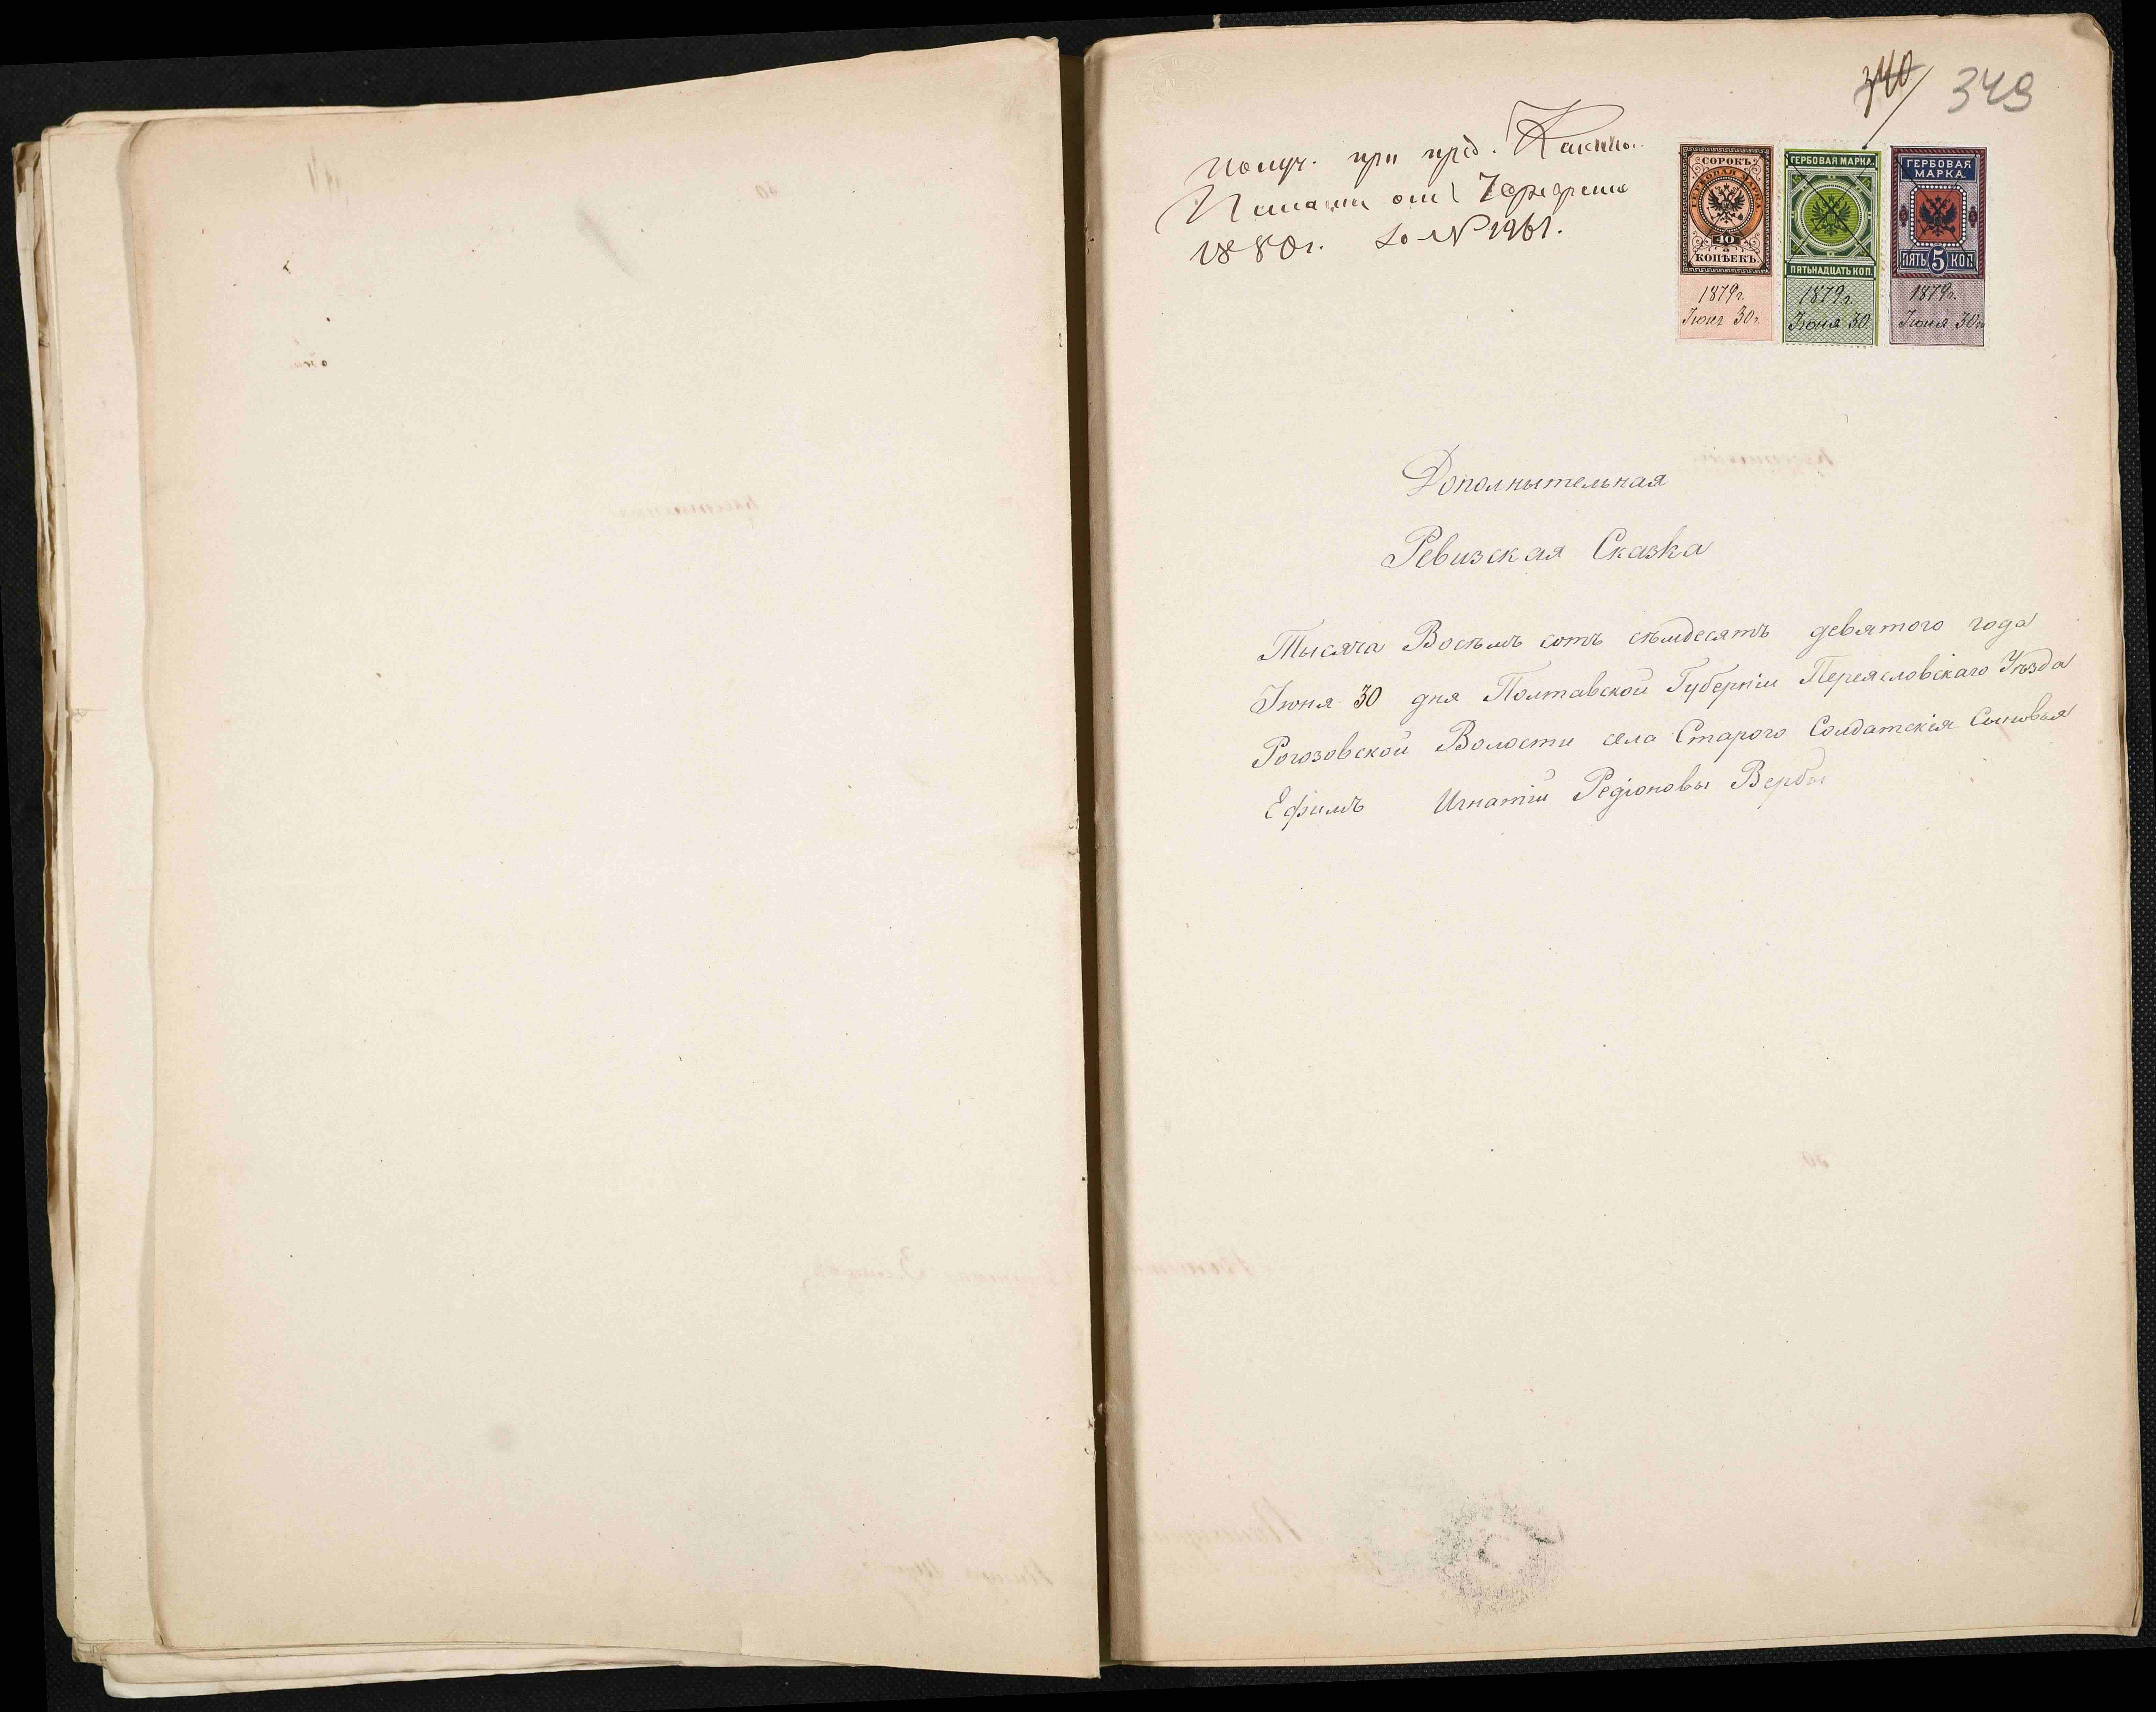 340 349
Получ. при пред. Казенн.
Палаты от 7 февраля
1880 г. за № 1961.
СОРОКЪ
ГЕРБОВАЯ МАРКА
40
КОПѢЕКЪ
1879 г.
Июня 30 г.
ГЕРБОВАЯ МАРКА
ПЯТЬНАДЦАТЬ КОП.
1879 г.
Июня 30
ГЕРБОВАЯ
МАРКА.
ПЯТЬ 5 КОП
1879 г.
Июня 30 г.
Дополнытельная
Ревизская Сказка
Тысяча Восѣмъ сотъ сѣмдесятъ девятого года
Июня 30 дня Полтавской Губерніи Переясловскаго Уѣзда
Рогозовской Волости села Старого Солдатскія Сыновья
Ефимъ Игнатій Редіоновы Вербы